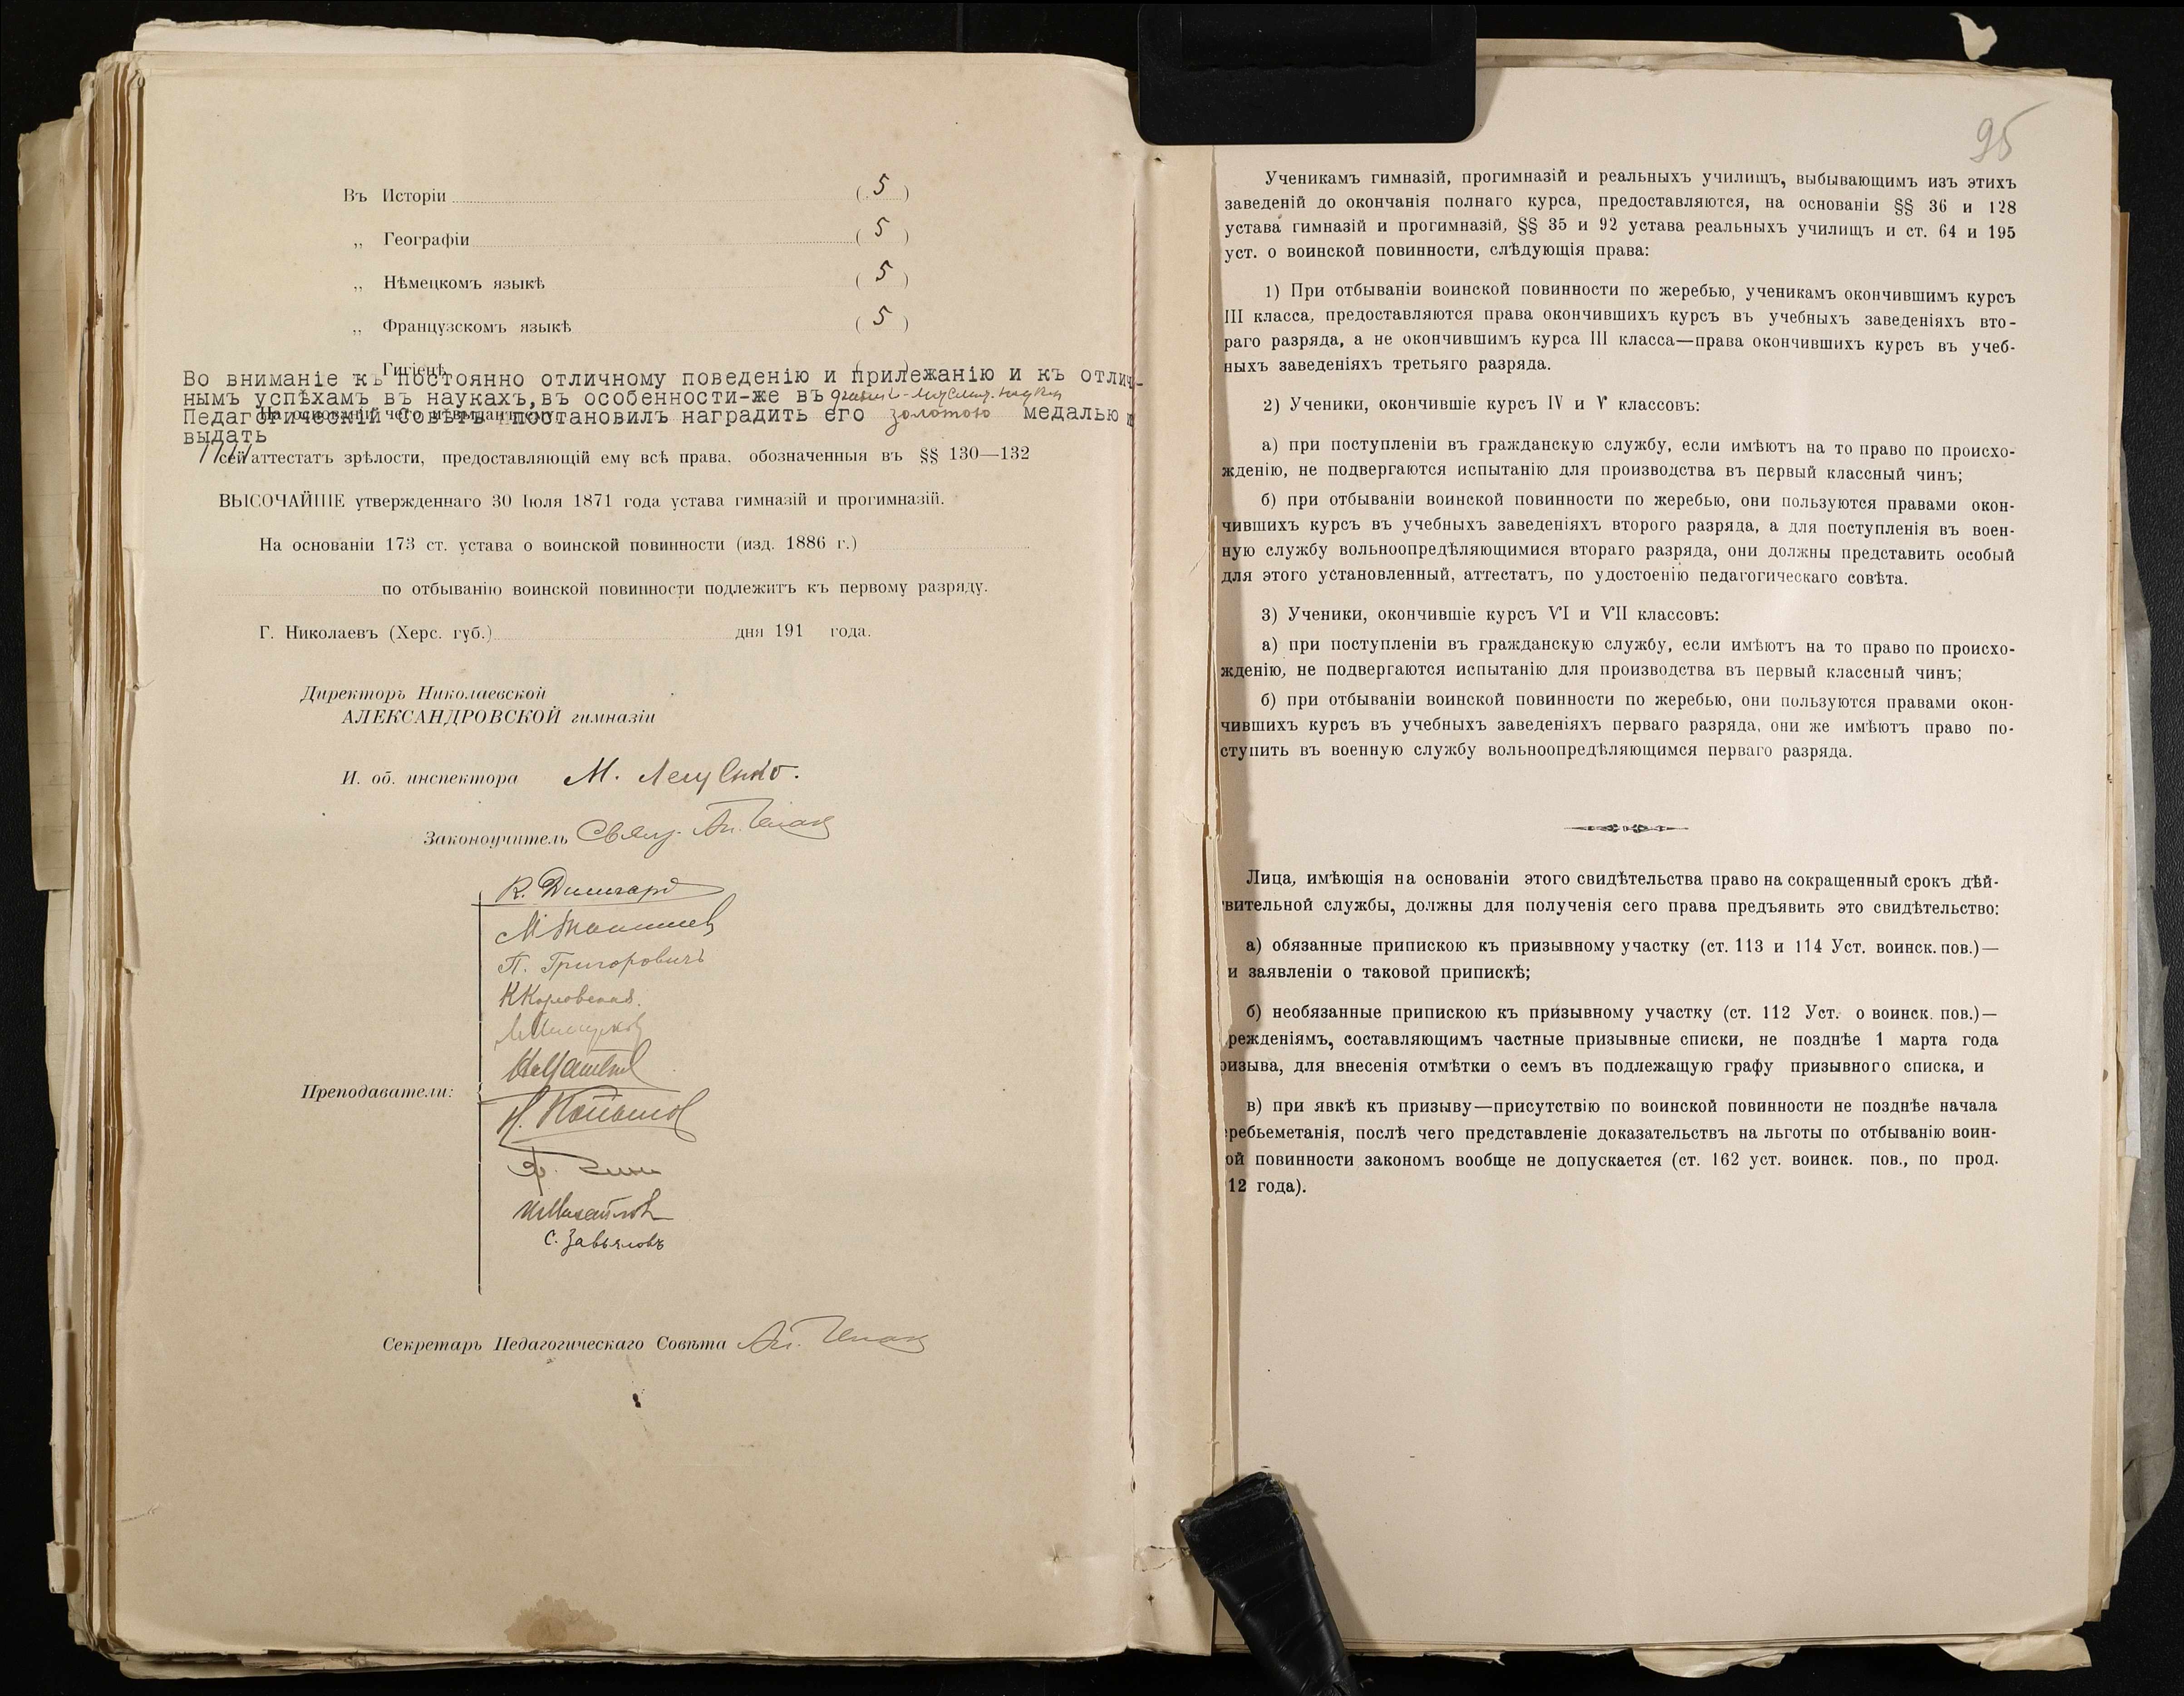 Въ Исторіи (5)
„ Географіи (5)
„ Нѣмецкомъ языкѣ (5)
„ Французскомъ языкѣ (5)
„ Гигіенѣ ( )
Во вниманіе къ постоянно отличному поведенію и прилежанію и къ отлич-
нымъ успѣхамъ въ наукахъ, въ особенности-же въ
На основаніи чего и выданъ ему
Педагогическій Совѣтъ постановилъ наградить его золотою медалью и
выдать
сей аттестатъ зрѣлости, предоставляющій ему всѣ права, обозначенныя въ §§ 130—132
ВЫСОЧАЙШЕ утвержденнаго 30 Іюля 1871 года устава гимназій и прогимназій.
На основаніи 173 ст. устава о воинской повинности (изд. 1886 г.)
по отбыванію воинской повинности подлежитъ къ первому разряду.
Г. Николаевъ (Херс. губ.) дня 191 года.
Директоръ Николаевской
АЛЕКСАНДРОВСКОЙ гимназіи
И. об. инспектора М.
Законоучитель Свящ. Ал.
К.
М.
П. Григоровичъ
Преподаватели:
Н.
Ф.
С. Завьяловъ
Секретарь Педагогическаго Совѣта Ал.
95
Ученикамъ гимназій, прогимназій и реальныхъ училищъ, выбывающимъ изъ этихъ
заведеній до окончанія полнаго курса, предоставляются, на основаніи §§ 36 и 128
устава гимназій и прогимназій, §§ 35 и 92 устава реальныхъ училищъ и ст. 64 и 195
уст. о воинской повинности, слѣдующія права:
1) При отбываніи воинской повинности по жеребью, ученикамъ окончившимъ курсъ
III класса, предоставляются права окончившихъ курсъ въ учебныхъ заведеніяхъ вто-
раго разряда, а не окончившимъ курса III класса—права окончившихъ курсъ въ учеб-
ныхъ заведеніяхъ третьяго разряда.
2) Ученики, окончившіе курсъ IV и V классовъ:
а) при поступленіи въ гражданскую службу, если имѣютъ на то право по происхо-
жденію, не подвергаются испытанію для производства въ первый классный чинъ;
б) при отбываніи воинской повинности по жеребью, они пользуются правами окон-
чившихъ курсъ въ учебныхъ заведеніяхъ второго разряда, а для поступленія въ воен-
ную службу вольноопредѣляющимися втораго разряда, они должны представить особый
для этого установленный, аттестатъ, по удостоенію педагогическаго совѣта.
3) Ученики, окончившіе курсъ VI и VII классовъ:
а) при поступленіи въ гражданскую службу, если имѣютъ на то право по происхо-
жденію, не подвергаются испытанію для производства въ первый классный чинъ;
б) при отбываніи воинской повинности по жеребью, они пользуются правами окон-
чившихъ курсъ въ учебныхъ заведеніяхъ перваго разряда, они же имѣютъ право по-
ступить въ военную службу вольноопредѣляющимся перваго разряда.
Лица, имѣющія на основаніи этого свидѣтельства право на сокращенный срокъ дѣй-
вительной службы, должны для полученія сего права предъявить это свидѣтельство:
а) обязанные припискою къ призывному участку (ст. 113 и 114 Уст. воинск. пов.)—
и заявленіи о таковой припискѣ;
б) необязанные припискою къ призывному участку (ст. 112 Уст. о воинск. пов.)—
режденіямъ, составляющимъ частные призывные списки, не позднѣе 1 марта года
ризыва, для внесенія отмѣтки о семъ въ подлежащую графу призывного списка, и
в) при явкѣ къ призыву—присутствію по воинской повинности не позднѣе начала
ребьеметанія, послѣ чего представленіе доказательствъ на льготы по отбыванію воин-
ой повинности закономъ вообще не допускается (ст. 162 уст. воинск. пов., по прод.
12 года).